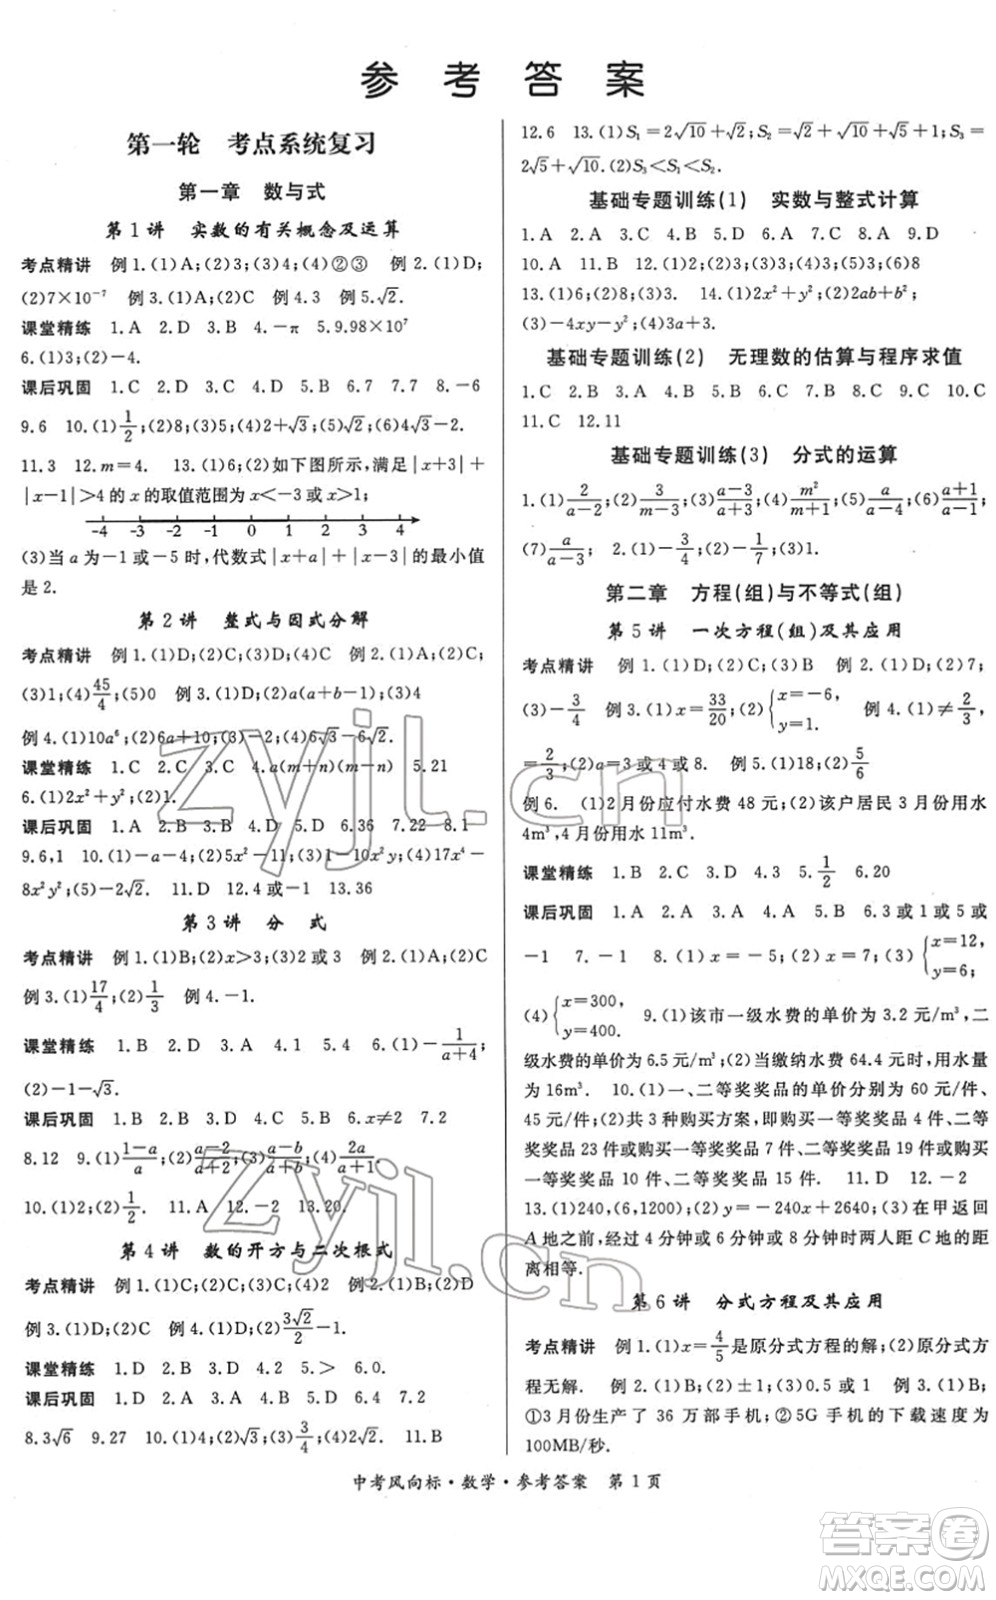 参考答案
第一轮 考点系统复习
第一章 数与式
第1讲 实数的有关概念及运算
考点精讲 例1.(1)A;(2)3;(3)4;(4)②③ 例2.(1)D;
(2)7×10⁻⁷ 例3.(1)A;(2)C 例4.3 例5.√2.
课堂精练 1.A 2.D 3.B 4.-π 5.9.98×10⁷
6.(1)3;(2)-4.
课后巩固 1.C 2.D 3.C 4.D 5.D 6.7 7.7 8.-6
9.6 10.(1)1/2;(2)8;(3)5;(4)2+√3;(5)√2;(6)4√3-2.
11.3 12.m=4. 13.(1)6;(2)如下图所示,满足|x+3|+
|x-1|>4的x的取值范围为x<-3或x>1;
-4 -3 -2 -1 0 1 2 3 4
(3)当a为-1或-5时,代数式|x+a|+|x-3|的最小值
是2.
第2讲 整式与因式分解
考点精讲 例1.(1)D;(2)C;(3)D;(4)D 例2.(1)A;(2)C;
(3)1;(4)45/4;(5)0 例3.(1)D;(2)a(a+b-1);(3)D
例4.(1)10a⁶;(2)6a+10;(3)-2;(4)6√3-6√2.
课堂精练 1.C 2.C 3.D 4.a(m+n)(m-n) 5.21
6.(1)2x²+y²;(2)1.
课后巩固 1.A 2.B 3.B 4.D 5.B 6.36 7.22 8.1
9.6,1 10.(1)-a-4;(2)5x²-11;(3)1-2x;(4)17x⁴-
8x²y²;(5)-2√2. 11.D 12.4或-1 13.36
第3讲 分 式
考点精讲 例1.(1)B;(2)x>3;(3)2或3 例2.(1)A;(2)C
例3.(1)17/4;(2)1/3 例4.-1.
课堂精练 1.B 2.D 3.A 4.1 5.4 6.(1)-1/(a+4);
(2)-1-√3.
课后巩固 1.D 2.B 3.A 4.B 5.B 6.x≠2 7.2
8.12 9.(1)(1-a)/a;(2)(a-2)/(a+2);(3)(a-b)/(a+b);(4)2a/(a+1).
10.(1)2;(2)1/2. 11.A 12.A 13.20.
第4讲 数的开方与二次根式
考点精讲 例1.(1)C;(2)C;(3)C;(4)2 例2.(1)B;(2)D
例3.(1)D;(2)C 例4.(1)D;(2)3√2/2-1.
课堂精练 1.D 2.B 3.D 4.2 5.> 6.0.
课后巩固 1.D 2.A 3.A 4.B 5.D 6.4 7.2
8.3√6 9.27 10.(1)4;(2)5;(3)3/4;(4)√2. 11.B
12.6 13.(1)S₁=2√10+√2;S₂=√2+√10+√5+1;S₃=
2√5+√10.(2)S₃<S₁<S₂.
基础专题训练(1) 实数与整式计算
1.A 2.B 3.C 4.B 5.D 6.A 7.D 8.A 9.D
10.A 11.B 12.(1)4;(2)6;(3)2;(4)3;(5)3;(6)8
13.(1)6;(2)8;(3)3. 14.(1)2x²+y²;(2)2ab+b²;
(3)-4xy-y²;(4)3a+3.
基础专题训练(2) 无理数的估算与程序求值
1.C 2.B 3.A 4.C 5.B 6.C 7.B 8.C 9.C 10.C
11.C 12.11
基础专题训练(3) 分式的运算
1.(1)2/(a-2);(2)3/(m-3);(3)(a-3)/(a+3);(4)m²/(m+1);(5)a/(a-4);(6)(a+1)/(a-1);
(7)a/(a-3); 2.(1)-3/4;(2)-1/7;(3)1.
第二章 方程(组)与不等式(组)
第5讲 一次方程(组)及其应用
考点精讲 例1.(1)D;(2)C;(3)B 例2.(1)D;(2)7;
(3)-3/4 例3.(1)x=33/20;(2){x=-6, y=1. 例4.(1)≠2/3,
2/3;(2)a=3或4或8. 例5.(1)2;(2)5/6
例6. (1)2月份应付水费48元;(2)该户居民3月份用水
4m³,4月份用水11m³.
课堂精练 1.B 2.D 3.C 4.A 5.1/2 6.20
课后巩固 1.A 2.A 3.D 4.A 5.B 6.3或1或5或
-1 7.-1 8.(1)x=-5;(2)x=7;(3){x=12, y=6;
(4){x=300, y=400. 9.(1)该市一级水费的单价为3.2元/m³,二
级水费的单价为6.5元/m³;(2)当缴纳水费64.4元时,用水量
为16m³. 10.(1)一、二等奖奖品的单价分别为60元/件、
45元/件;(2)共3种购买方案,即购买一等奖奖品4件、二等
奖奖品23件或购买一等奖奖品7件、二等奖奖品19件或购买
一等奖奖品10件、二等奖奖品15件. 11.D 12.-2
13.(1)240,(6,1200);(2)y=-240x+2640;(3)在甲返回
A地之前,经过4分钟或6分钟或8分钟时两人距C地的距
离相等.
第6讲 分式方程及其应用
考点精讲 例1.(1)x=4/5是原分式方程的解;(2)原分式方
程无解. 例2.(1)B;(2)±1;(3)0.5或1 例3.(1)B;
①3月份生产了36万部手机;②5G手机的下载速度为
100MB/秒.
中考风向标·数学·参考答案 第1页
zyjl.cn
zyjl.cn
答案卷
MXQE.COM